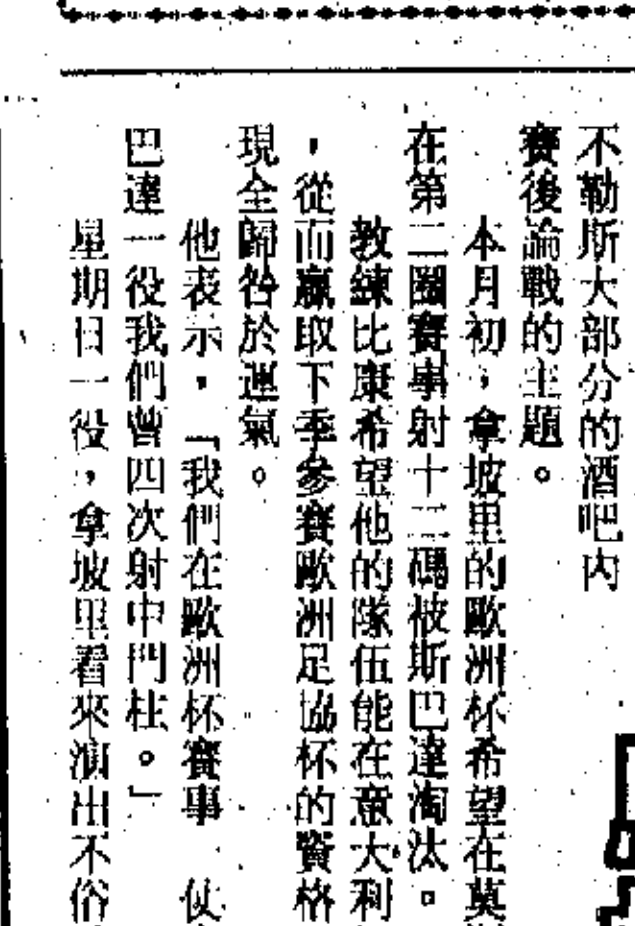 不勒斯大部分的酒吧內
賽後論戰的主題。
本月初，拿坡里的歐洲杯希望在莫
在第二圈賽事射十二碼被斯巴達淘汰。
教練比康希望他的隊伍能在意大利
，從而贏取下季參賽歐洲足協杯的資格
現全歸咎於運氣。
他表示，「我們在歐洲杯賽事
巴達一役我們曾四次射中門柱。」
星期日一役，拿坡里看來演出不俗